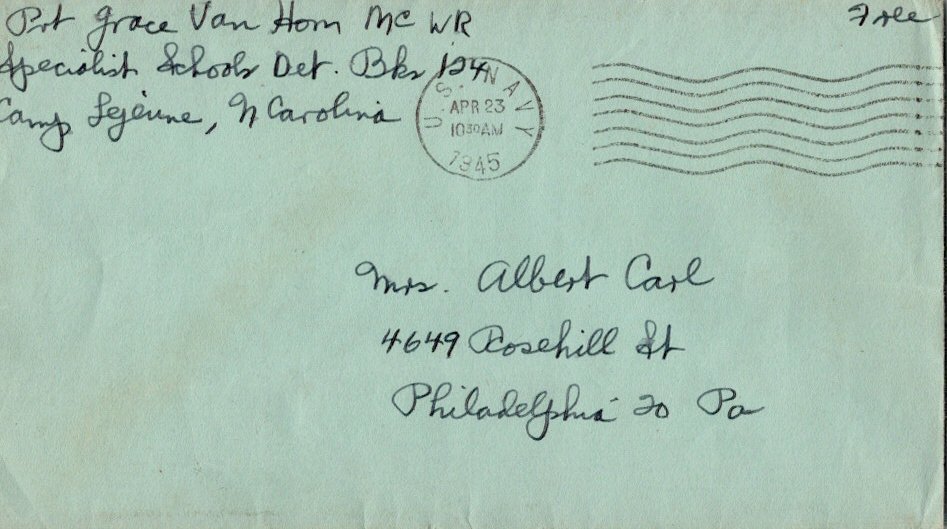 Pvt Grace Van Horn MC WR
Free
Specialist Schools Det. Bks 124
Camp Lejeune, N Carolina
U.S. NAVY
APR 23
10 30 AM
1945
Mrs. Albert Carl
4649 Rosehill St
Philadelphia 20 Pa